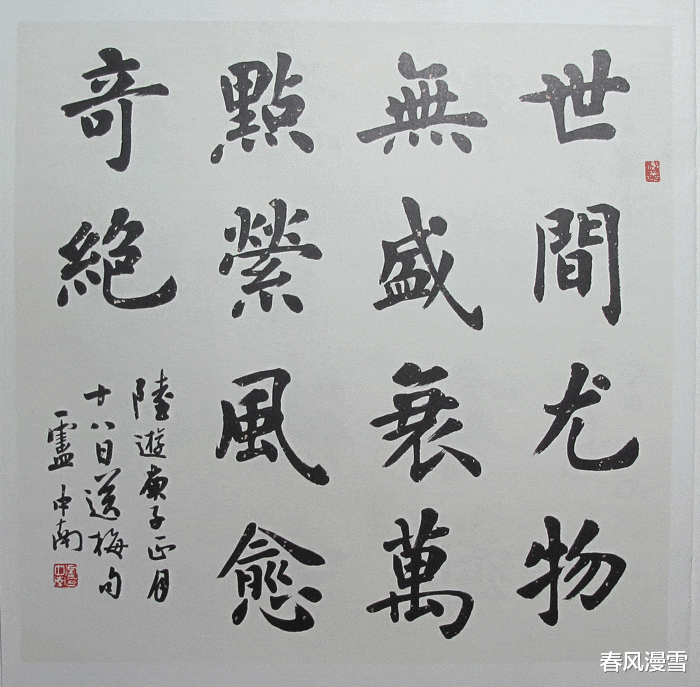 世間尤物
無盛衰萬
點縈風愈
奇絕
陸遊庚子正月
十八日送梅句
盧中南
春风漫雪